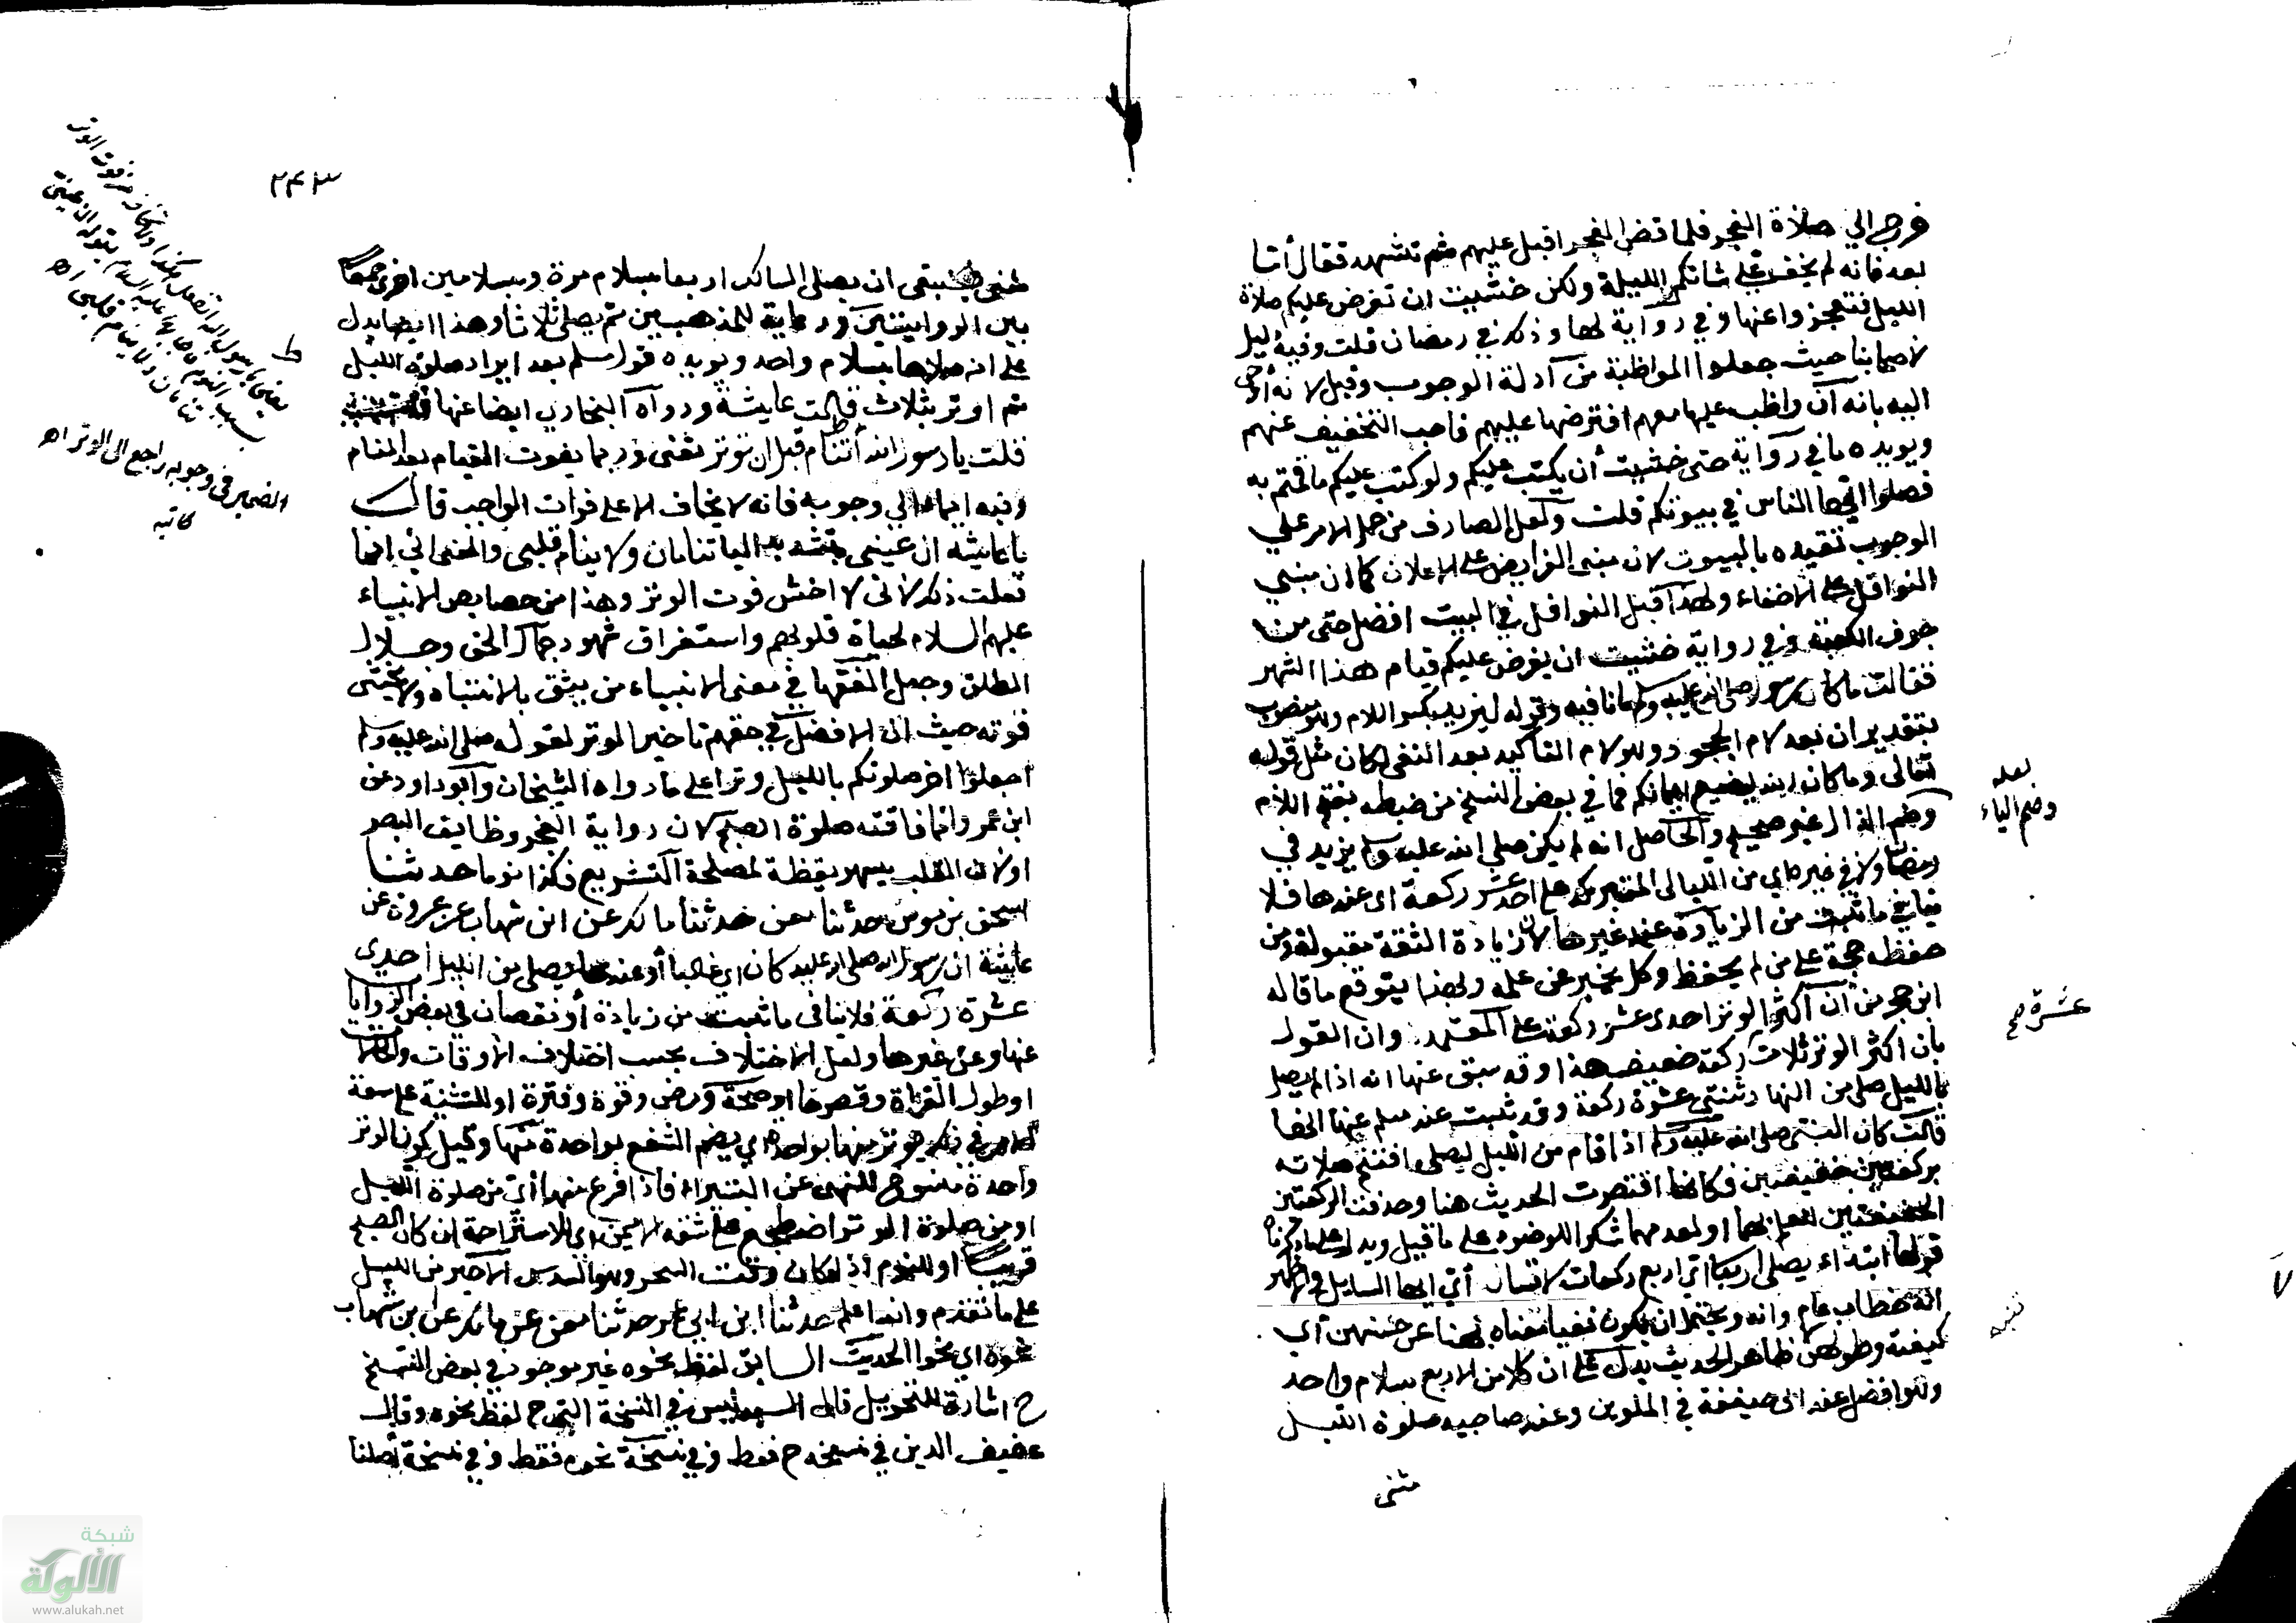 فخرج الي صلاة الفجر فلما قضى الفجر اقبل عليهم ثم تشهد فقال أما
بعد فانه لم يخف علي شانكم الليلة ولكن خشيت ان تفرض عليكم صلاة
الليل فتعجزوا عنها وفي رواية لها وذلك في رمضان قلت وفيه دليل
لاصحابنا حيث جعلوا المواظبة من أدلة الوجوب وقيل لانه أوحى
اليه بانه ان واظب عليها معهم افترضها عليهم فاحب التخفيف عنهم
ويويده ما في رواية حتى خشيت أن يكتب عليكم ولو كتب عليكم ما قمتم به
فصلوا ايها الناس في بيوتكم قلت ولعل الصارف من حمل الامر علي
الوجوب تقييده بالبيوت لان مبنى الفرايض على الاعلان كما ان مبني
النوافل على الاخفاء ولهذا قيل النوافل في البيت افضل حتى من
جوف الكعبة وفي رواية خشيت ان يفرض عليكم قيام هذا الشهر
فقالت ما كان رسول الله صلى الله عليه وسلم ما نافيه وقوله ليزيد بكسر اللام وهو منصوب
بتقدير ان بعد لام الجحود وهو لام التأكيد بعد النفي لكان مثل قوله
تعالى وما كان الله ليضيع ايمانكم فما في بعض النسخ من ضبطه بفتح اللام
وضم الدال غير صحيح والحاصل انه لم يكن صلى الله عليه وسلم يزيد في
رمضان ولا في غيره اي من الليالي المتبركة على احد عشر ركعة اى عندها فلا
ينافي ما ثبت من الزيادة عند غيرها لان زيادة الثقة مقبولة ومن
حفظ حجة على من لم يحفظ وكل يخبر عن علمه ولهذا يتوقع ما قاله
ابن حجر من أن أكثر الوتر احدى عشر ركعة على المعتمد وان القول
بأن اكثر الوتر ثلاث ركعة ضعيف هذا وقد سبق عنها انه اذا لم يصل
بالليل صلى من النهار ثنتي عشرة ركعة وقد ثبت عند مسلم عنها ايضا
قالت كان النبي صلى الله عليه وسلم اذا قام من الليل ليصلى افتتح صلاته
بركعتين خفيفتين فكانها اقتصرت الحديث هنا وحذفت الركعتين
الخفيفتين لعلم بهما او لعدهما شكر الوضوء على ما قيل ويدل على ما ذكرناه
قولها ابتداء يصلي اربعا أي اربع ركعات لا تسال أي ايها السايل والاظهر
انه خطاب عام وانه يحتمل ان يكون نفيا معناه نهيا عن حسنهن أي
كيفيته وطولهن ظاهر الحديث يدل على ان كلا من الاربع بسلام واحد
وهو افضل عند ابى حنيفة في الملوين وعند صاحبيه صلوة الليل
مثنى
لعله
وضم الياء
عشرة صح
٢٤٣
مثنى فينبغي ان يصلى السالك اربعا بسلام مرة وبسلامين اخرى جمعا
بين الروايتين ورعاية للمذهبين ثم يصلى ثلاثا وهذا ايضا يدل
على انه صلاها بسلام واحد ويويده قول مسلم بعد ايراد صلوة الليل
ثم اوتر بثلاث قالت عايشة ورواه البخاري ايضا عنها
قلت يا رسول الله أتنام قبل ان توتر تعنى وربما يفوت القيام بعد المنام
وفيه ايماء الي وجوبه فانه لا يخاف الا على فوات الواجب قال
يا عايشة ان عيني بتشديد اليا تنامان ولا ينام قلبى والمعنى اني انما
فعلت ذلك لانى لا اخش فوت الوتر وهذا من خصايص الانبياء
عليهم السلام لحياة قلوبهم واستغراق شهود جمال الحق وجلال
المطلق وجعل الفقها في معنى الانبياء من يثق بالانتباه ولا يخشى
فوته حيث ان الافضل في حقهم تاخير الوتر لقوله صلى الله عليه وسلم
اجعلوا اخر صلوتكم بالليل وترا على ما رواه الشيخان وأبو داود عن
ابن عمر وانما فاتته صلوة الصبح لان رواية الفجر وظايف البصر
اولان القلب يسهو يقظة لمصلحة التشريع فكذا نوما حدثنا
اسحق بن موسى حدثنا معن حدثنا مالك عن ابن شهاب عن عروة عن
عايشة ان رسول الله صلى الله عليه كان اي غالبا أو عندها يصلى من الليل احدى
عشرة ركعة فلا ينافى ما ثبت من زيادة أو نقصان في بعض الروايات
عنها وعن غيرها ولعل الاختلاف بحسب اختلاف الاوقات والحالات
او طول القراة وقصرها او صحة ومرض وقوة وفترة او للتنبيه على سعة
الامر في ذلك يوتر منها بواحدة اي يضم الشفع بواحدة منها وقيل كون الوتر
واحدة منسوخ للنهى عن البتيراء فاذا فرغ منها أي من صلوة الليل
او من صلوة الوتر اضطجع على شقه الايمن اي للاستراحة ان كان الصبح
قريبا او للنوم اذا كان وقت السحر وهو السدس الاخير من الليل
على ما تقدم والله اعلم حدثنا ابن ابي عمر حدثنا معن عن مالك عن ابن شهاب
نحوه اي نحوا الحديث السابق لفظ نحوه غير موجود في بعض النسخ
ح اشارة للتحويل قال السيد ليس في النسخة التي ح لفظ نحوه وقال
عفيف الدين في نسخه ح فقط وفي نسخة نحوه فقط وفي نسخة أصلنا
الضمير في وجوبه راجع الى الوتر اه
كاتبه
شبكة
الألوكة
www.alukah.net